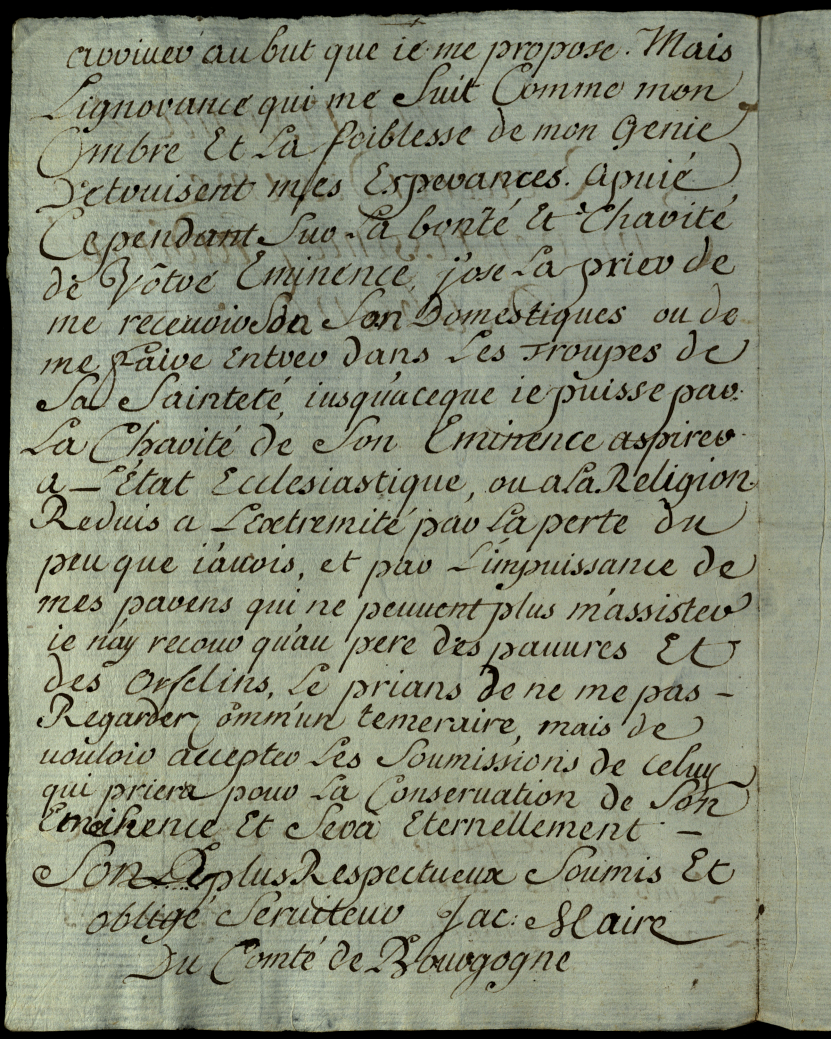 arriuer au but que ie me propose. Mais
L'ignorance qui me Suit Comme mon
Ombre Et La foiblesse de mon Genie
Detruisent mes Esperances. apuié
Cependant Sur La bonté Et Charité
de Vôtre Eminence, j'ose La prier de
me receuoir Son Domestiques ou de
me faire Entrer dans Les Troupes de
Sa Sainteté, iusqu'aceque ie puisse par
La Charité de Son Eminence aspirer
a L'Etat Ecclesiastique, ou a La Religion.
Reduis a L'extremité par La perte du
peu que i'auois, et par L'impuissance de
mes parens qui ne peuuent plus m'assister
ie n'ay recour qu'au pere des pauures Et
des Orfelins, Le prians de ne me pas –
Regarder omm'un temeraire, mais de
uouloir accepter Les Soumissions de celuy
qui priera pour La Conseruation de Son
Eminence Et Sera Eternellement –
Son plus Respectueux Soumis Et
obligé Seruiteur Jac: Maire
Du Comté de Bourgogne